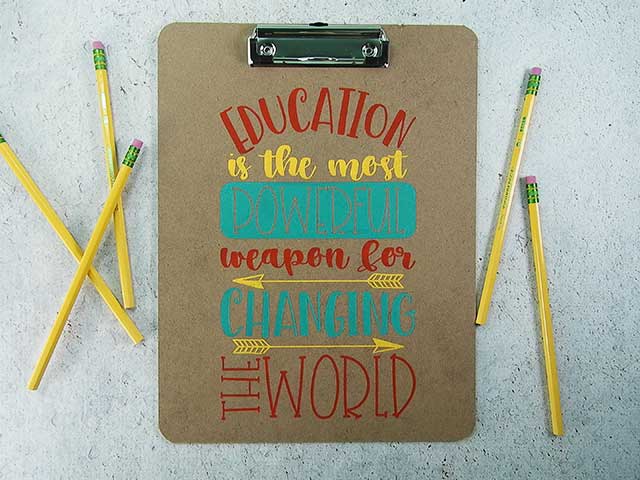 EDUCATION
is the most
POWERFUL
weapon for
CHANGING
THE WORLD